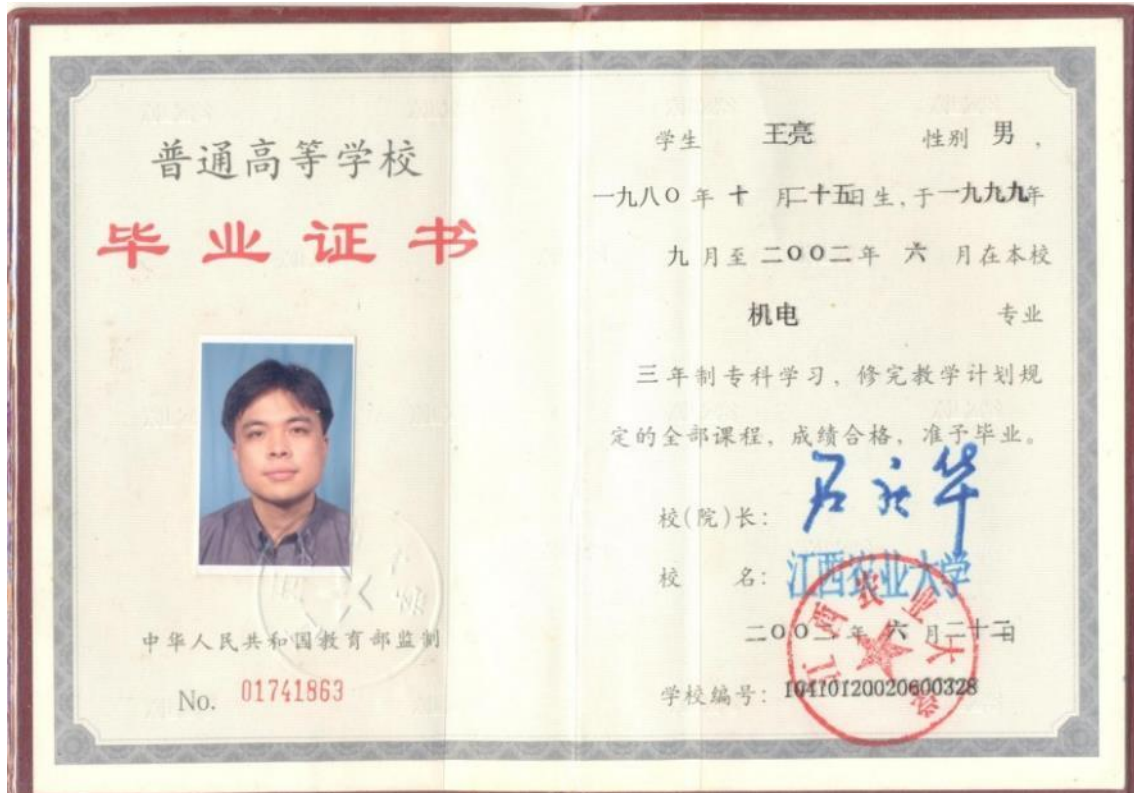 普通高等学校
毕业证书
中华人民共和国教育部监制
No. 01741863
学生 王亮 性别 男，
一九八〇年十月二十五日生，于一九九九年
九月至二〇〇二年六月在本校
机电 专业
三年制专科学习，修完教学计划规
定的全部课程，成绩合格，准予毕业。
校(院)长：
校 名：江西农业大学
二〇〇二年六月二十二日
学校编号：104101200206000328
江西农业大学